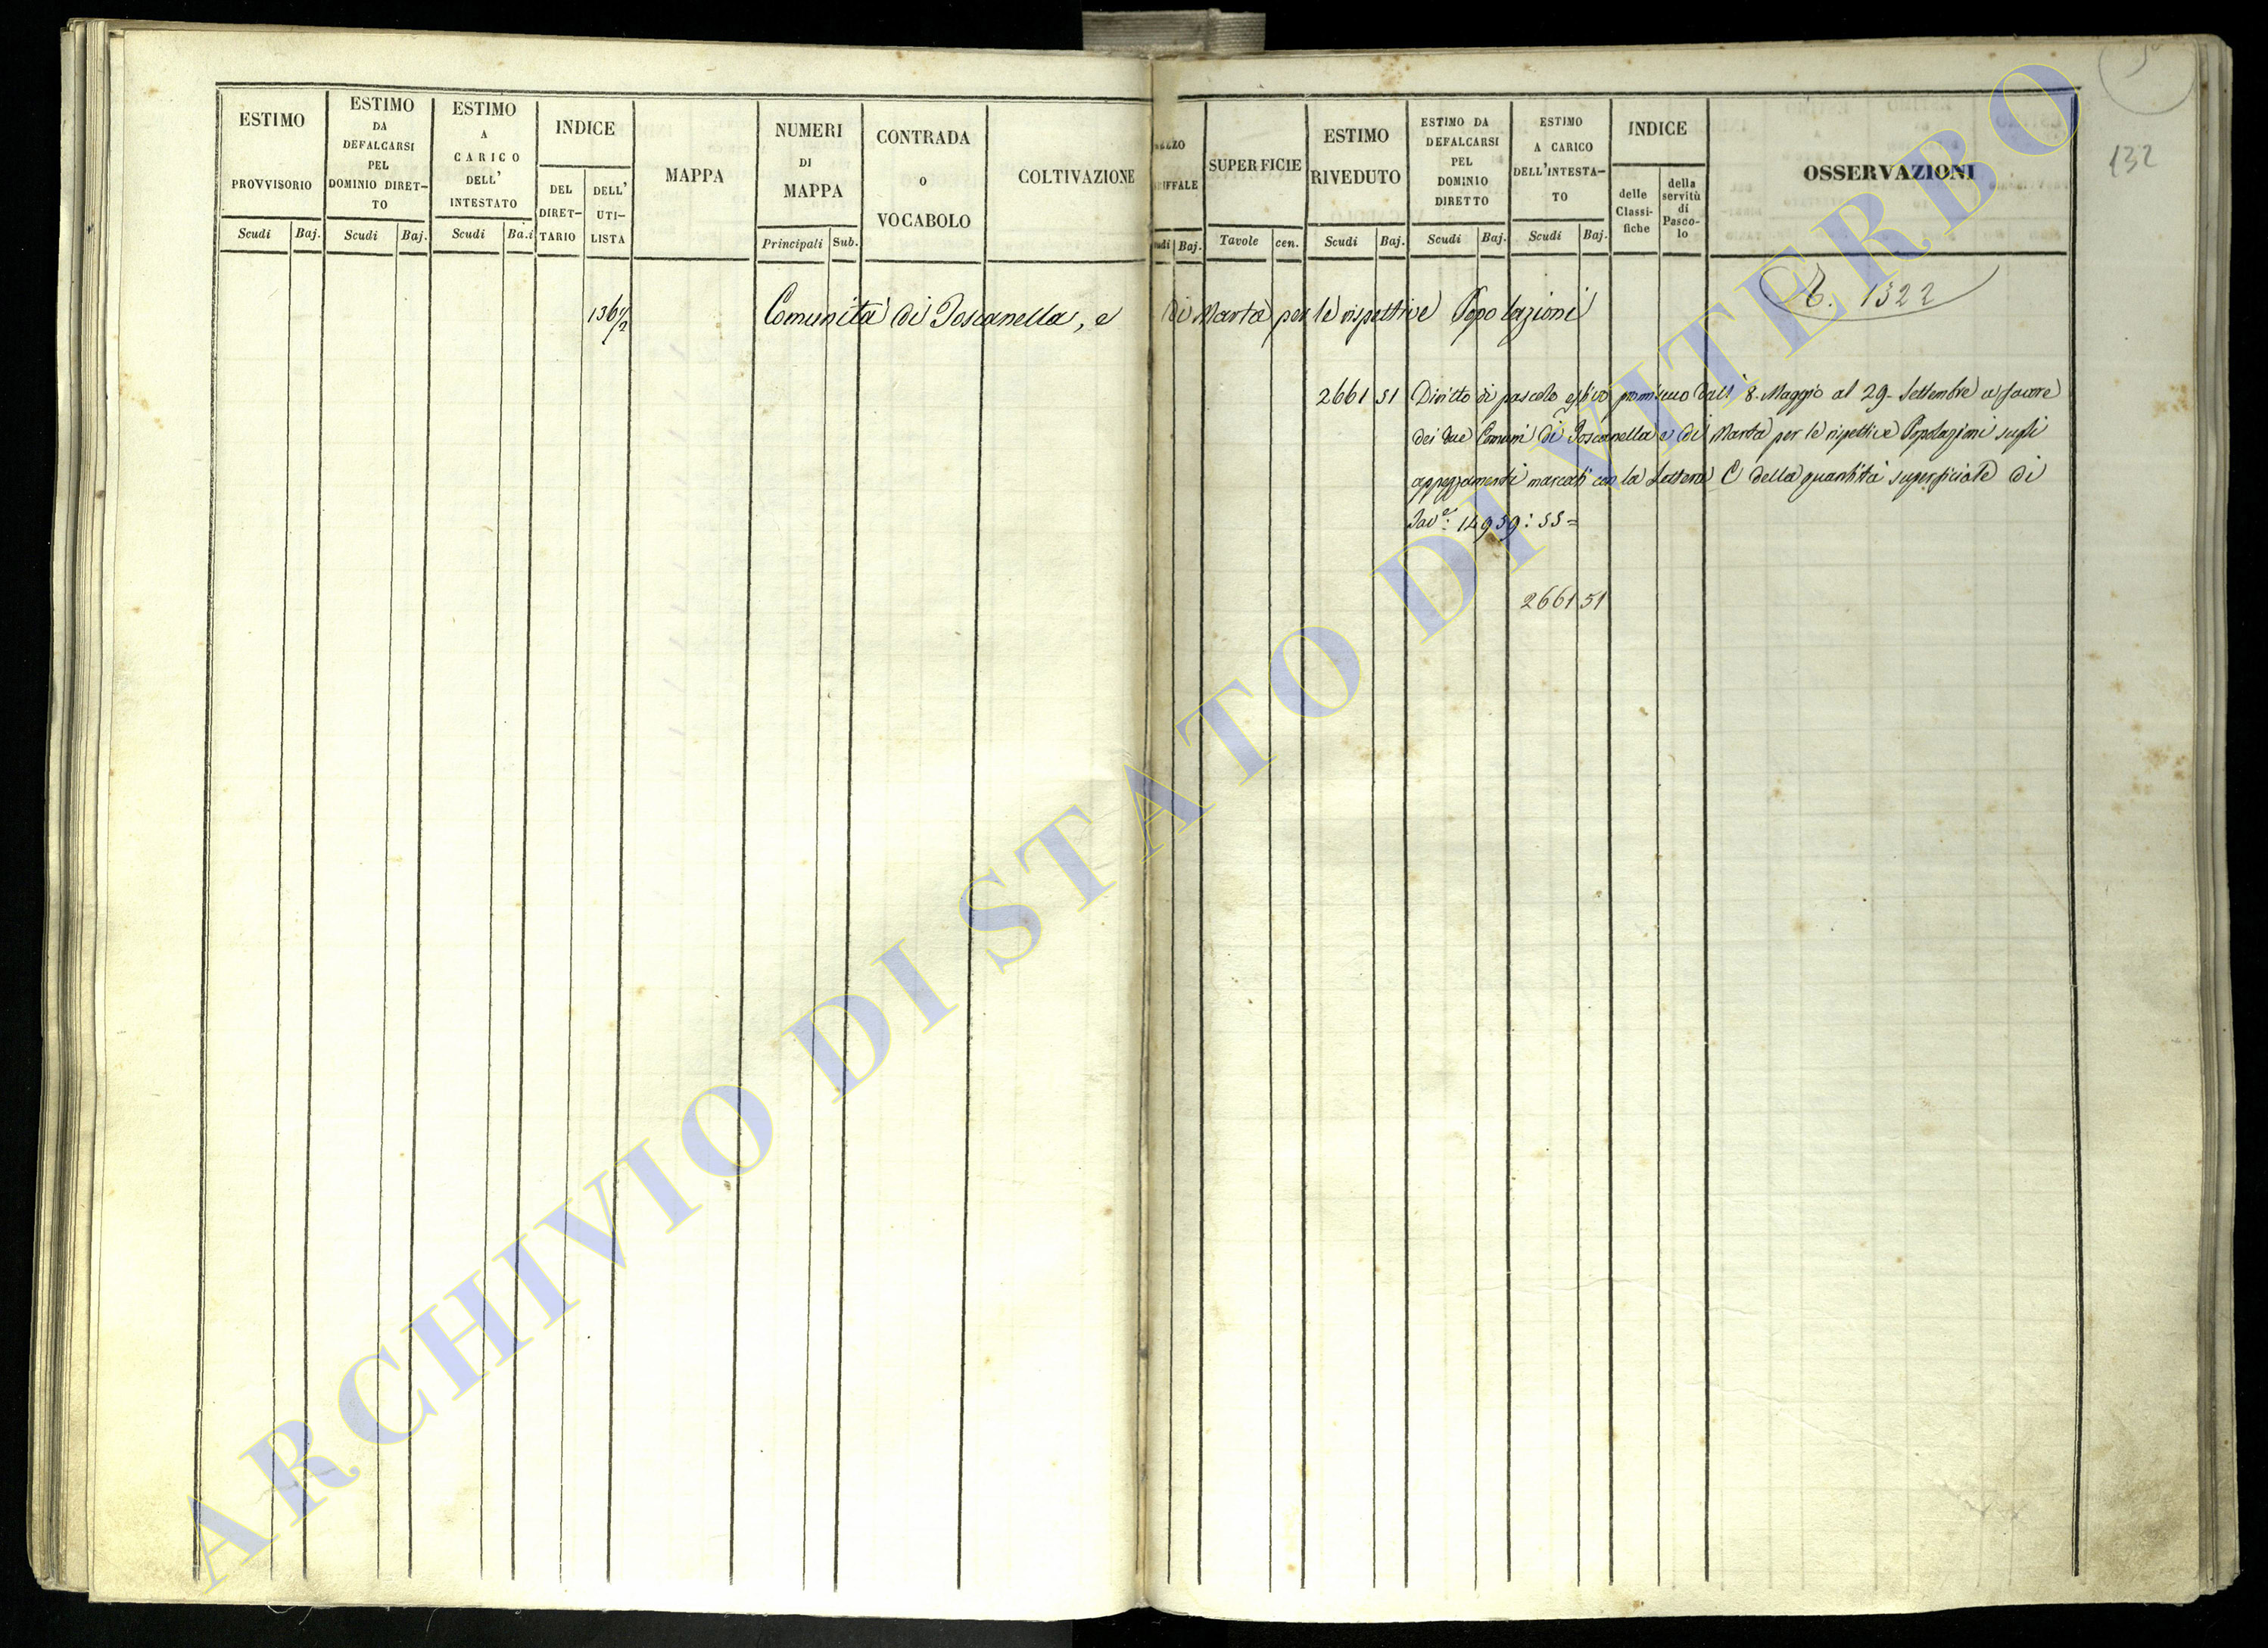 132
ESTIMO PROVVISORIO
Scudi Baj.
ESTIMO DA DEFALCARSI PEL DOMINIO DIRET-TO
Scudi Baj.
ESTIMO A CARICO DELL' INTESTATO
Scudi Ba.i
INDICE
DEL DIRET-TARIO
DELL' UTI-LISTA
MAPPA
NUMERI DI MAPPA
Principali Sub.
CONTRADA O VOCABOLO
COLTIVAZIONE
Baj.
SUPERFICIE
Tavole cen.
ESTIMO RIVEDUTO
Scudi Baj.
ESTIMO DA DEFALCARSI PEL DOMINIO DIRETTO
Scudi Baj.
ESTIMO A CARICO DELL'INTESTA-TO
Scudi Baj.
INDICE
delle Classi-fiche
della servitù di Pasco-lo
OSSERVAZIONI
1322
136 1/2 Comunità di Toscanella, e di Marta per le rispettive Popolazioni
2661 51 Diritto di pascolo estivo promiscuo dalli 8. Maggio al 29. Settembre a favore
dei due Comuni di Toscanella e di Marta per le rispettive Popolazioni sugli
appezzamenti marcati con la Lettera C della quantità superficiale di
Tav.e: 14959: 55=
2661 51
ARCHIVIO DI STATO DI VITERBO